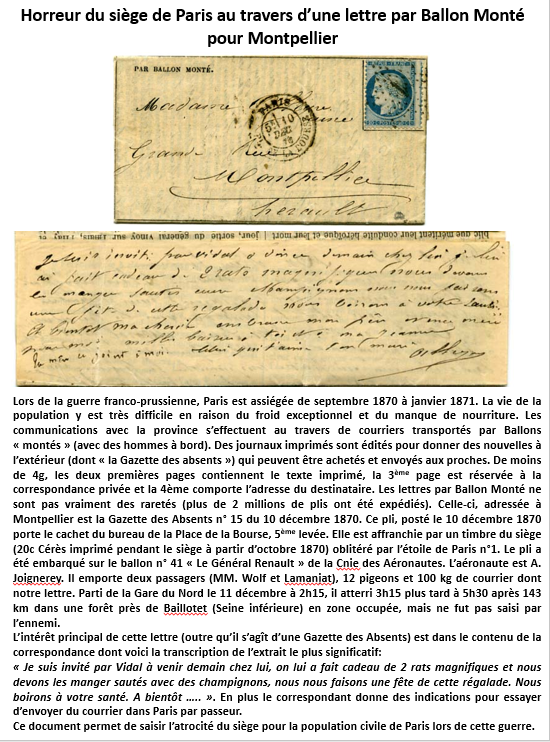 Horreur du siège de Paris au travers d'une lettre par Ballon Monté
pour Montpellier
PAR BALLON MONTÉ.
Madame
PARIS
10
DEC
Grande Rue
Montpellier
herault
blic que méritent leur conduite héroïque et leur mort, jour, sortie du général Vinoy sur
Je suis invité par Vidal à dîner demain chez lui on lui
a fait cadeau de 2 rats magnifiques nous devons
le manger sautés aux champignons nous nous faisons
une fête de cette régalade nous boirons à votre santé
A bientôt ma chérie embrasse mon père
mille baisers toi et à ma
Lors de la guerre franco-prussienne, Paris est assiégée de septembre 1870 à janvier 1871. La vie de la
population y est très difficile en raison du froid exceptionnel et du manque de nourriture. Les
communications avec la province s'effectuent au travers de courriers transportés par Ballons
« montés » (avec des hommes à bord). Des journaux imprimés sont édités pour donner des nouvelles à
l'extérieur (dont « la Gazette des absents ») qui peuvent être achetés et envoyés aux proches. De moins
de 4g, les deux premières pages contiennent le texte imprimé, la 3ème page est réservée à la
correspondance privée et la 4ème comporte l'adresse du destinataire. Les lettres par Ballon Monté ne
sont pas vraiment des raretés (plus de 2 millions de plis ont été expédiés). Celle-ci, adressée à
Montpellier est la Gazette des Absents n° 15 du 10 décembre 1870. Ce pli, posté le 10 décembre 1870
porte le cachet du bureau de la Place de la Bourse, 5ème levée. Elle est affranchie par un timbre du siège
(20c Cérès imprimé pendant le siège à partir d'octobre 1870) oblitéré par l'étoile de Paris n°1. Le pli a
été embarqué sur le ballon n° 41 « Le Général Renault » de la Cnie des Aéronautes. L'aéronaute est A.
Joignerey. Il emporte deux passagers (MM. Wolf et Lamaniat), 12 pigeons et 100 kg de courrier dont
notre lettre. Parti de la Gare du Nord le 11 décembre à 2h15, il atterri 3h15 plus tard à 5h30 après 143
km dans une forêt près de Baillotet (Seine inférieure) en zone occupée, mais ne fut pas saisi par
l'ennemi.
L'intérêt principal de cette lettre (outre qu'il s'agît d'une Gazette des Absents) est dans le contenu de la
correspondance dont voici la transcription de l'extrait le plus significatif:
« Je suis invité par Vidal à venir demain chez lui, on lui a fait cadeau de 2 rats magnifiques et nous
devons les manger sautés avec des champignons, nous nous faisons une fête de cette régalade. Nous
boirons à votre santé. A bientôt ….. ». En plus le correspondant donne des indications pour essayer
d'envoyer du courrier dans Paris par passeur.
Ce document permet de saisir l'atrocité du siège pour la population civile de Paris lors de cette guerre.